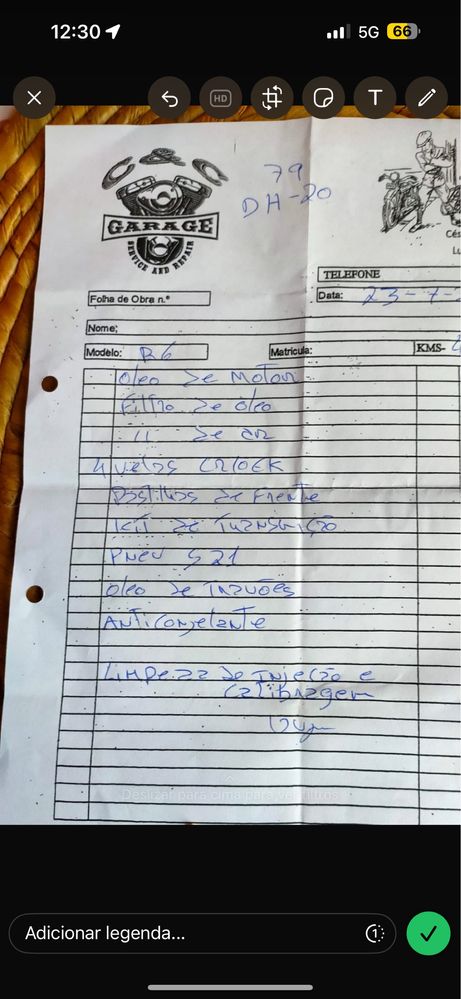 12:30
5G 66
HD T
C & C
GARAGE
SERVICE AND REPAIR
79
DH-20
Cés
Lu
TELEFONE
Folha de Obra n.º
Data: 23-7-2
Nome;
Modelo: R6
Matricula:
KMS- 4
Oleo De Motor
Filtro De oleo
11 De ar
4 velas CR10EK
Pastilhas De Frente
Kit De Transmição
Pneu S21
Oleo De Travões
Anticongelante
Limpeza De Injeção e
Calibragem
Deslizar para cima para ver filtros
Adicionar legenda...
1